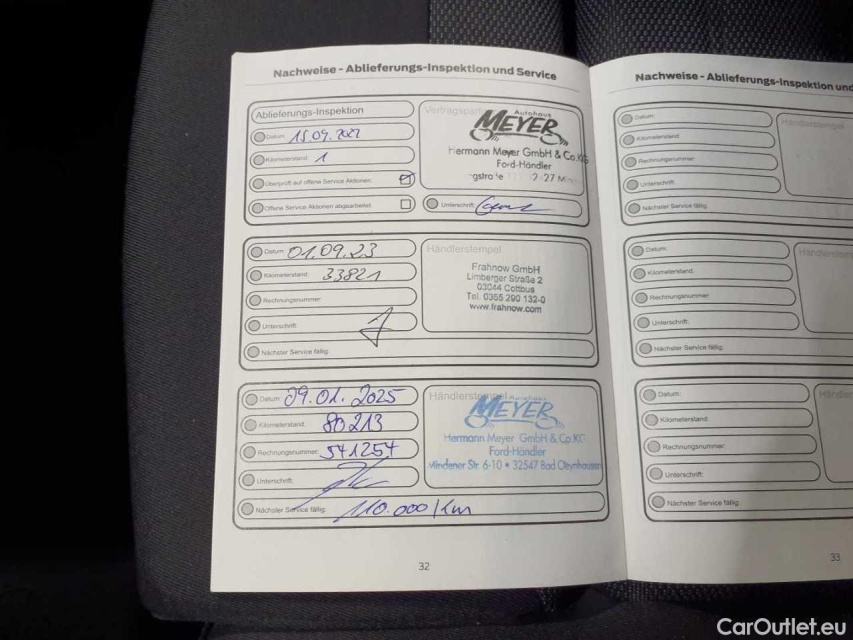 Nachweise - Ablieferungs-Inspektion und Service
Ablieferungs-Inspektion
Datum: 15.09.2022
Kilometerstand: 1
Überprüft auf offene Service Aktionen:
Offene Service Aktionen abgearbeitet:
Autohaus
MEYER
Hermann Meyer GmbH & Co.KG
Ford-Händler
Unterschrift:
Datum: 01.09.23
Kilometerstand: 33821
Rechnungsnummer:
Unterschrift:
Nächster Service fällig:
Händlerstempel
Frahnow GmbH
Limberger Straße 2
03044 Cottbus
Tel. 0355 290 132-0
www.frahnow.com
Datum: 09.01.2025
Kilometerstand: 80213
Rechnungsnummer: 541254
Unterschrift:
Nächster Service fällig: 110.000 Km
Händlerstempel
MEYER
Hermann Meyer GmbH & Co.KG
Ford-Händler
Mindener Str. 6-10 • 32547 Bad Oeynhausen
32
Nachweise - Ablieferungs-Inspektion und
Datum:
Kilometerstand:
Rechnungsnummer:
Unterschrift:
Nächster Service fällig:
Händlerstempel
Datum:
Kilometerstand:
Rechnungsnummer:
Unterschrift:
Nächster Service fällig:
Händlerstem
Datum:
Kilometerstand:
Rechnungsnummer:
Unterschrift:
Nächster Service fällig:
Händ
33
CarOutlet.eu